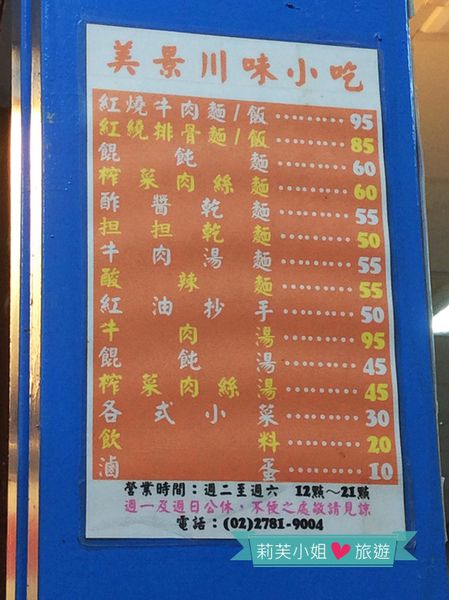 美景川味小吃
紅燒牛肉麵/飯 ……… 95
紅繞排骨麵/飯 ……… 85
餛飩麵 ……… 60
榨菜肉絲麵 ……… 60
酢醬乾麵 ……… 55
担担乾麵 ……… 50
牛肉湯麵 ……… 55
酸辣麵 ……… 55
紅油抄手 ……… 50
牛肉湯 ……… 95
餛飩湯 ……… 45
榨菜肉絲湯 ……… 45
各式小菜 ……… 30
飲料 ……… 20
滷蛋 ……… 10
營業時間：週二至週六 12點～21點
週一及週日公休，不便之處敬請見諒
電話：(02)2781-9004
莉芙小姐❤旅遊